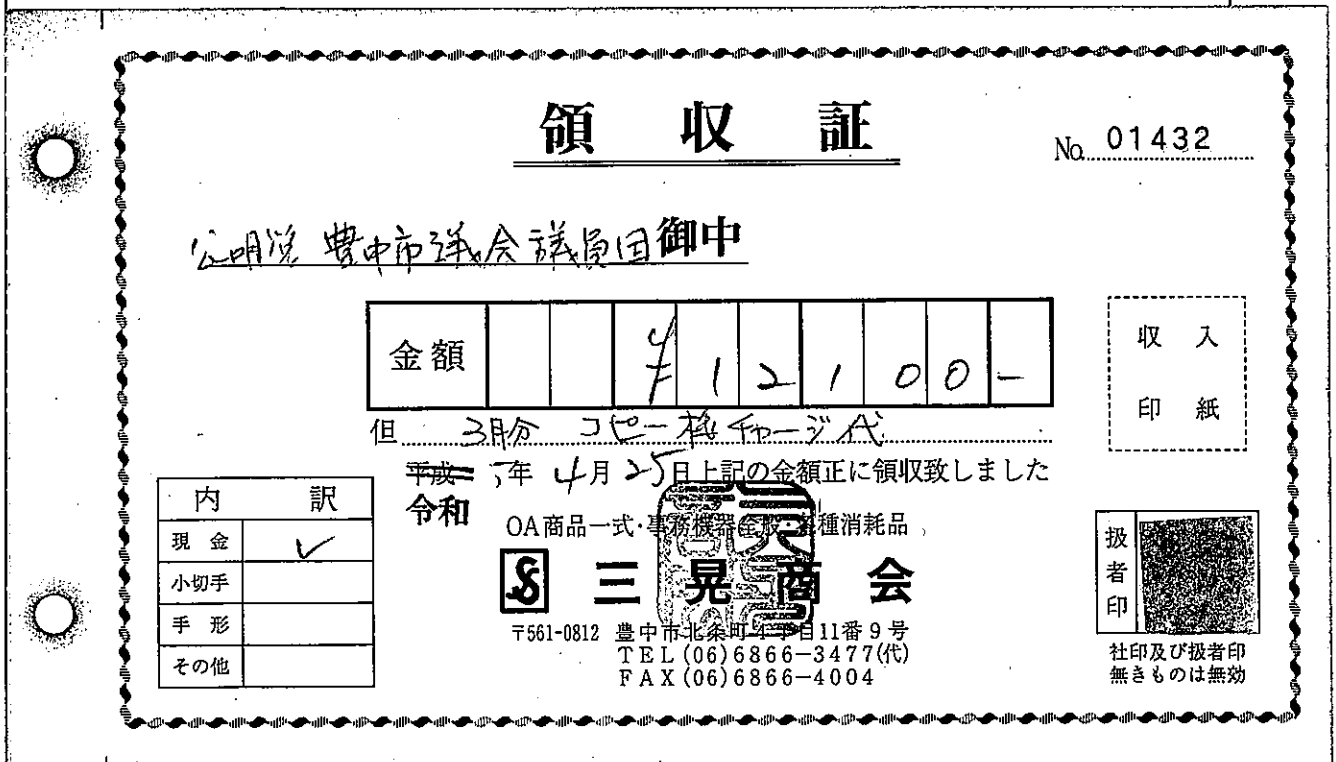 領収証
No. 01432
公明党 豊中市議会議員団御中
金額 ¥12100-
但 3月分 コピー機チャージ代
平成 5年4月25日上記の金額正に領収致しました
令和
OA商品一式・事務機器全般・各種消耗品
三晃商会
〒561-0812 豊中市北条町4丁目11番9号
TEL(06)6866-3477(代)
FAX(06)6866-4004
内訳
現金 ✓
小切手
手形
その他
収入
印紙
扱者印
社印及び扱者印
無きものは無効